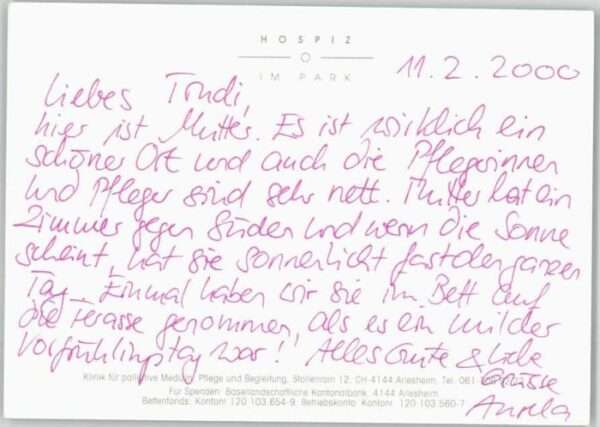 HOSPIZ
IM PARK
11.2.2000
Liebes Trudi,
hier ist Mutter. Es ist wirklich ein
schöner Ort und auch die Pflegerinnen
und Pfleger sind sehr nett. Mutter hat ein
Zimmer gegen Süden und wenn die Sonne
scheint, hat sie Sonnenlicht fast den ganzen
Tag. Einmal haben wir sie im Bett auf
die Terasse genommen, als es ein milder
Vorfrühlingstag war! Alles Gute & liebe
Grüsse
Klinik für palliative Medizin, Pflege und Begleitung, Stollenrain 12, CH-4144 Arlesheim, Tel. 061
Für Spenden: Basellandschaftliche Kantonalbank, 4144 Arlesheim
Bettenfonds: Kontonr. 120 103 654-9 Betriebskonto: Kontonr. 120 103 560-7